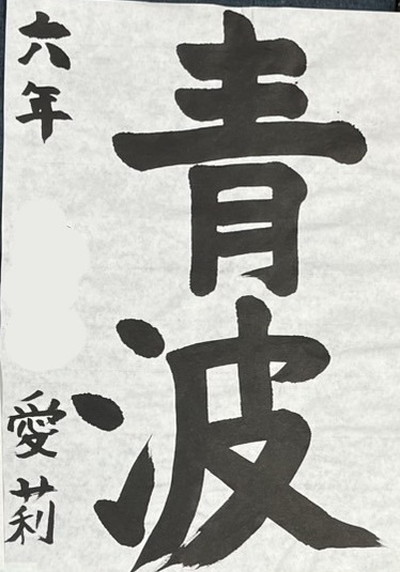 青波
六年
愛莉